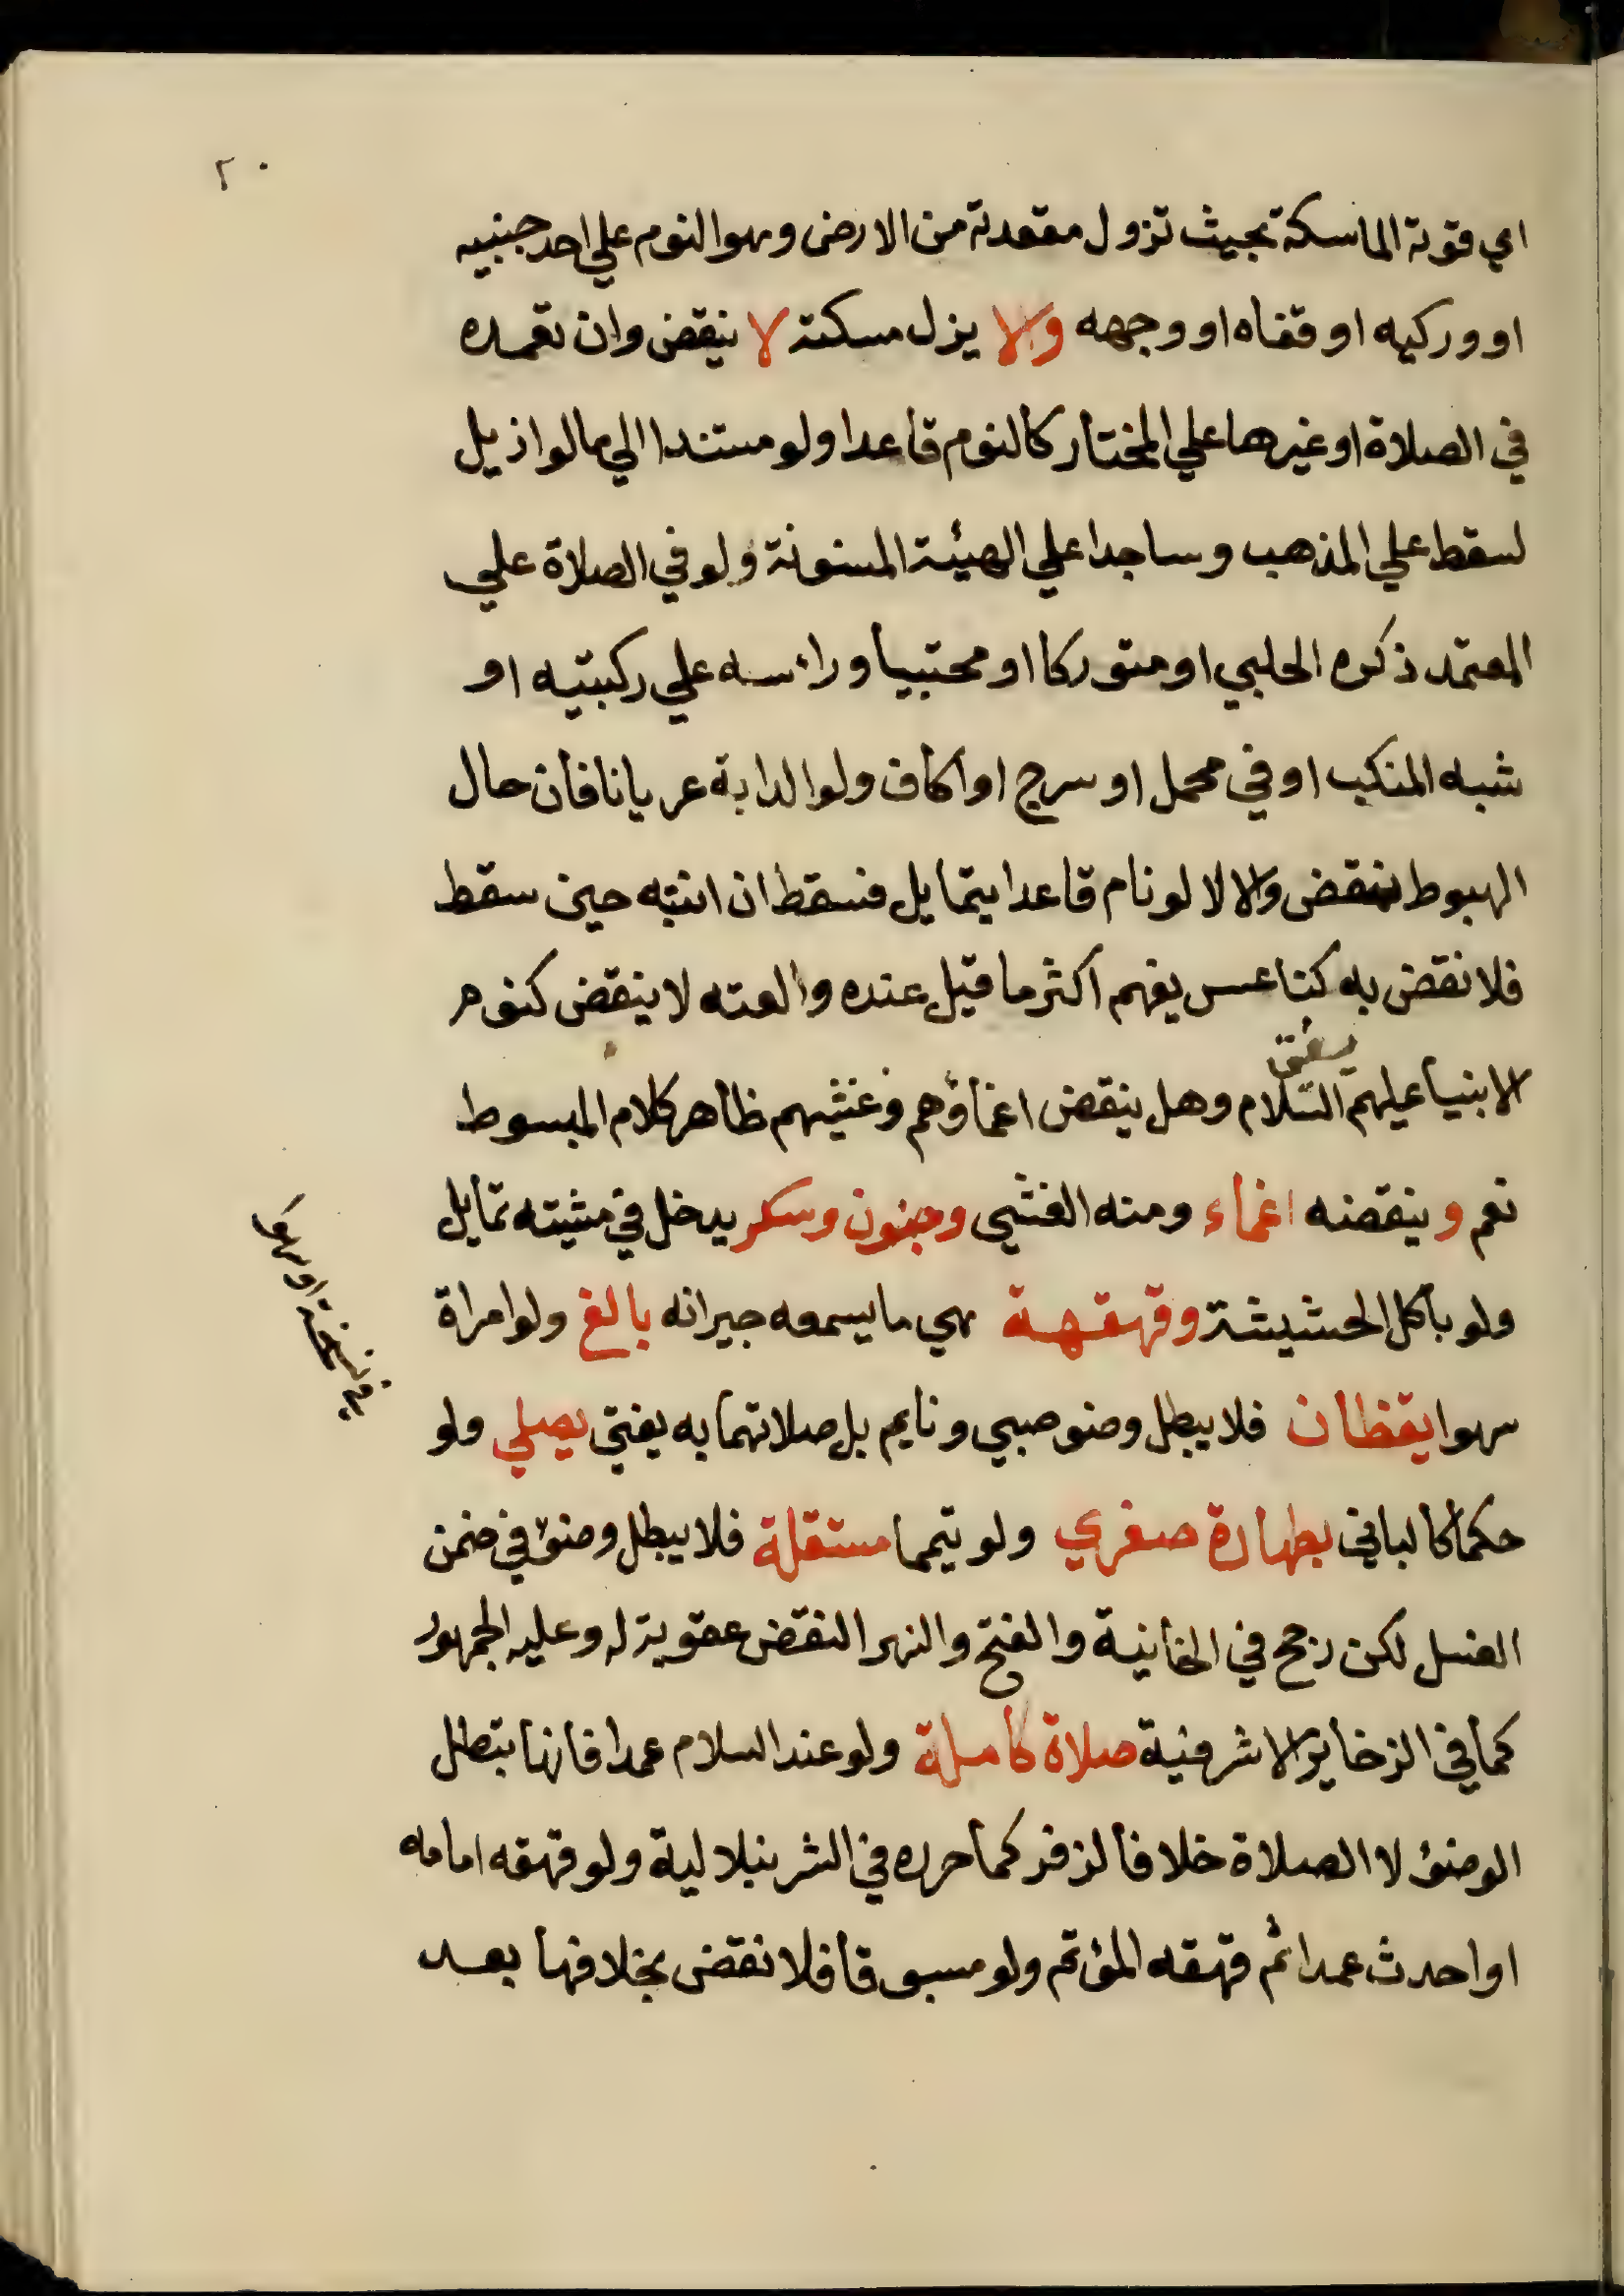 ٢٠
اي قوته الماسكة بحيث تزول مقعدته من الارض وهو النوم علي احد جنبيه
او وركيه او قفاه او وجهه والا يزل مسكته لا ينقض وان تعمده
في الصلاة او غيرها علي المختار كالنوم قاعدا ولو مستندا الي ما لو ازيل
لسقط علي المذهب وساجدا علي الهيئة المسنونة ولو في الصلاة علي
المعتمد ذكره الحلبي او متوركا او محتبيا وراسه علي ركبتيه او
شبه المنكب او في محمل او سرج او اكاف ولو الدابة عريانا فان حال
الهبوط نقض والا لا لو نام قاعدا يتمايل فسقط ان انتبه حين سقط
فلا نقض به كناعس يفهم اكثر ما قيل عنده والعته لا ينقض كنوم
الانبيا عليهم السلام وهل ينقض اغماؤهم وغشيهم ظاهر كلام المبسوط
نعم وينقضه اغماء ومنه الغشي وجنون وسكر يدخل في مشيته تمايل
ولو باكل الحشيشة وقهقهة هي ما يسمعه جيرانه بالغ ولو امراة
سهوا يقظان فلا يبطل وضو صبي ونايم بل صلاتهما به يفتي يصلي ولو
حكما كالباني بطهارة صغري ولو تيمما مستقلة فلا يبطل وضؤ في ضمن
الغسل لكن رجح في الخانية والفتح والنهر النقض عقوبة له وعليه الجمهور
كما في الذخاير الاشرفية صلاة كاملة ولو عند السلام عمدا فانها تبطل
الوضؤ لا الصلاة خلافا لزفر كما حرره في الشرنبلالية ولو قهقه امامه
او احدث عمدا ثم قهقه المؤتم ولو مسبوقا فلا نقض بخلافها بعد
في نسخة او سهوا